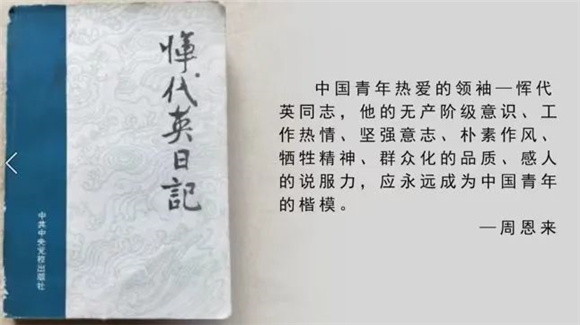 恽代英日記
中共中央党校出版社
中国青年热爱的领袖—恽代
英同志，他的无产阶级意识、工
作热情、坚强意志、朴素作风、
牺牲精神、群众化的品质、感人
的说服力，应永远成为中国青年
的楷模。
—周恩来